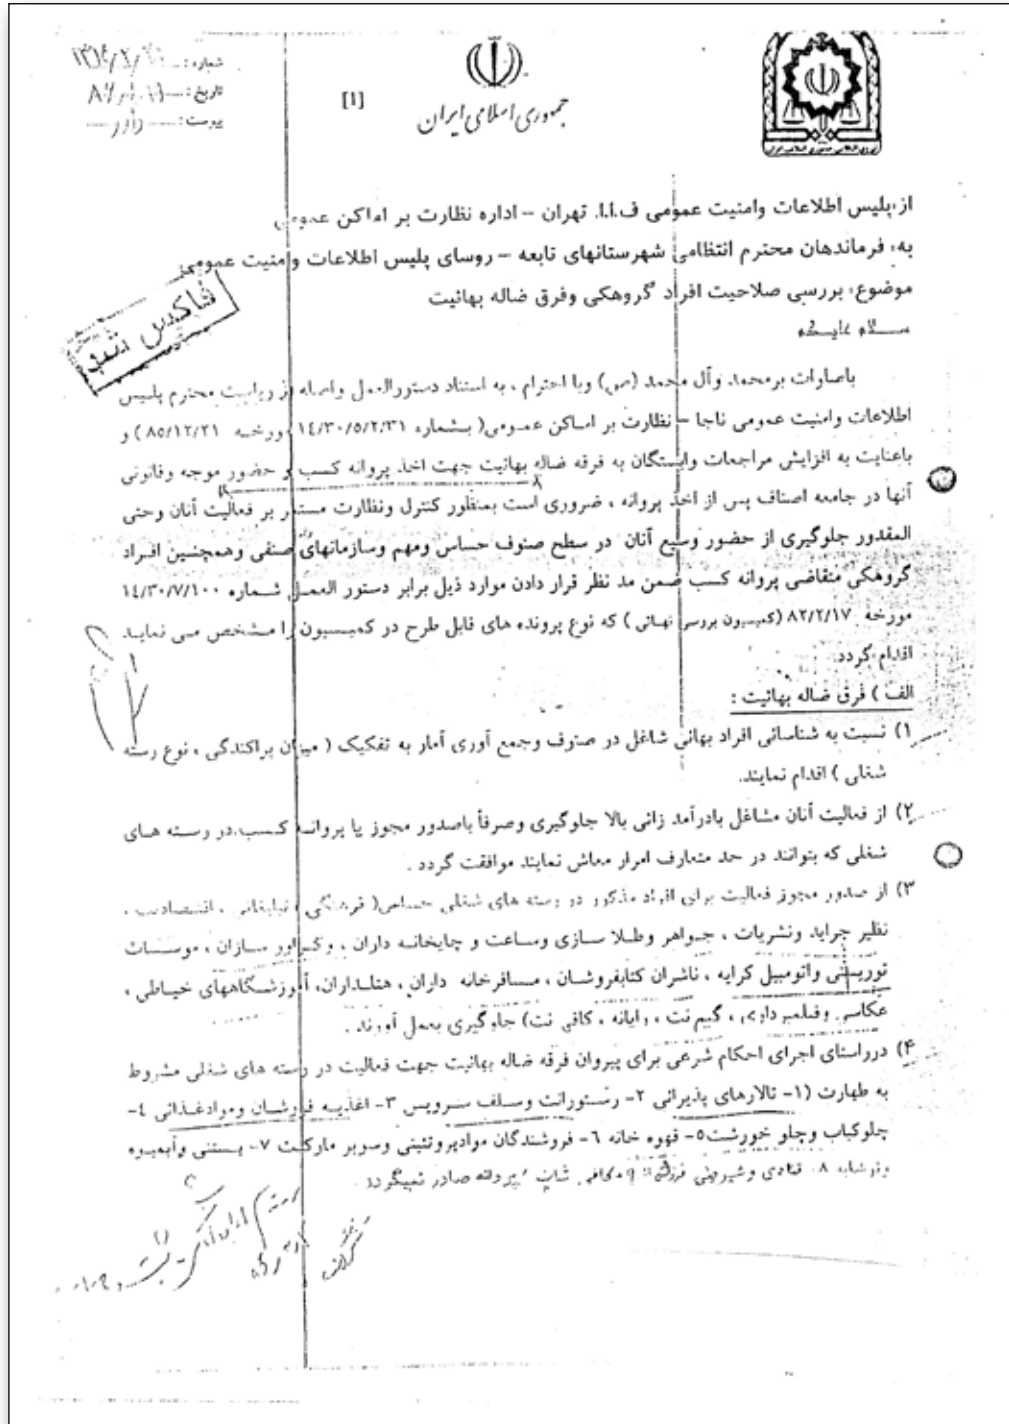 شماره:
تاریخ:
پیوست:
[1]
جمهوری اسلامی ایران
از:پلیس اطلاعات وامنیت عمومی ف.ا.ا. تهران – اداره نظارت بر اماکن عمومی
به: فرماندهان محترم انتظامی شهرستانهای تابعه – روسای پلیس اطلاعات وامنیت عمومی
موضوع: بررسی صلاحیت افراد گروهکی وفرق ضاله بهائیت
فاکس شد
سلام علیکم
باصلوات برمحمد وآل محمد (ص) وبا احترام ، به استناد دستورالعمل واصله از ریاست محترم پلیس
اطلاعات وامنیت عمومی ناجا – نظارت بر اماکن عمومی( بشماره ١٤/٣٠/٥/٢/٣١ مورخه ٨٥/١٢/٢١ ) و
باعنایت به افزایش مراجعات وابستگان به فرقه ضاله بهائیت جهت اخذ پروانه کسب و حضور موجه وقانونی
آنها در جامعه اصناف پس از اخذ پروانه ، ضروری است بمنظور کنترل ونظارت مستمر بر فعالیت آنان وحتی
المقدور جلوگیری از حضور وسیع آنان در سطح صنوف حساس ومهم وسازمانهای صنفی وهمچنسین افراد
گروهکی متقاضی پروانه کسب ضمن مد نظر قرار دادن موارد ذیل برابر دستور العمل شماره ١٤/٣٠/٧/١٠٠
مورخه ٨٢/٢/١٧ (کمیسیون بررسی نهائی ) که نوع پرونده های قابل طرح در کمیسیون را مشخص می نماید
اقدام گردد.
الف ) فرق ضاله بهائیت :
١) نسبت به شناسائی افراد بهائی شاغل در صنوف وجمع آوری آمار به تفکیک ( میزان پراکندگی ، نوع رسته
شغلی ) اقدام نمایند.
٢) از فعالیت آنان مشاغل بادرآمد زائی بالا جلوگیری وصرفاً باصدور مجوز یا پروانه کسب،در رسته های
شغلی که بتوانند در حد متعارف امرار معاش نمایند موافقت گردد .
٣) از صدور مجوز فعالیت برای افراد مذکور در رسته های شغلی حساس( فرهنگی ، تبلیغاتی ، اقتصادی ،
نظیر جراید ونشریات ، جواهر وطلا سازی وساعت و چاپخانه داران ، وگراور سازان ، موسسات
توریستی واتومبیل کرایه ، ناشران کتابفروشان ، مسافرخانه داران ، هتلداران، آموزشگاههای خیاطی ،
عکاسی وفیلمبرداری ، گیم نت ، رایانه ، کافی نت) جلوگیری بعمل آورند .
۴) درراستای اجرای احکام شرعی برای پیروان فرقه ضاله بهائیت جهت فعالیت در رسته های شغلی مشروط
به طهارت (١- تالارهای پذیرائی ٢- رستورانت وسلف سرویس ٣- اغذیه فروشان وموادغذائی ٤-
چلوکباب وچلو خورشت٥- قهوه خانه ٦- فروشندگان موادپروتئینی وسوپر مارکت ٧- بستنی وآبمیوه
ونوشابه ٨- قنادی وشیرینی فروشی ٩- کافی شاپ ) پروانه صادر نمیگردد .